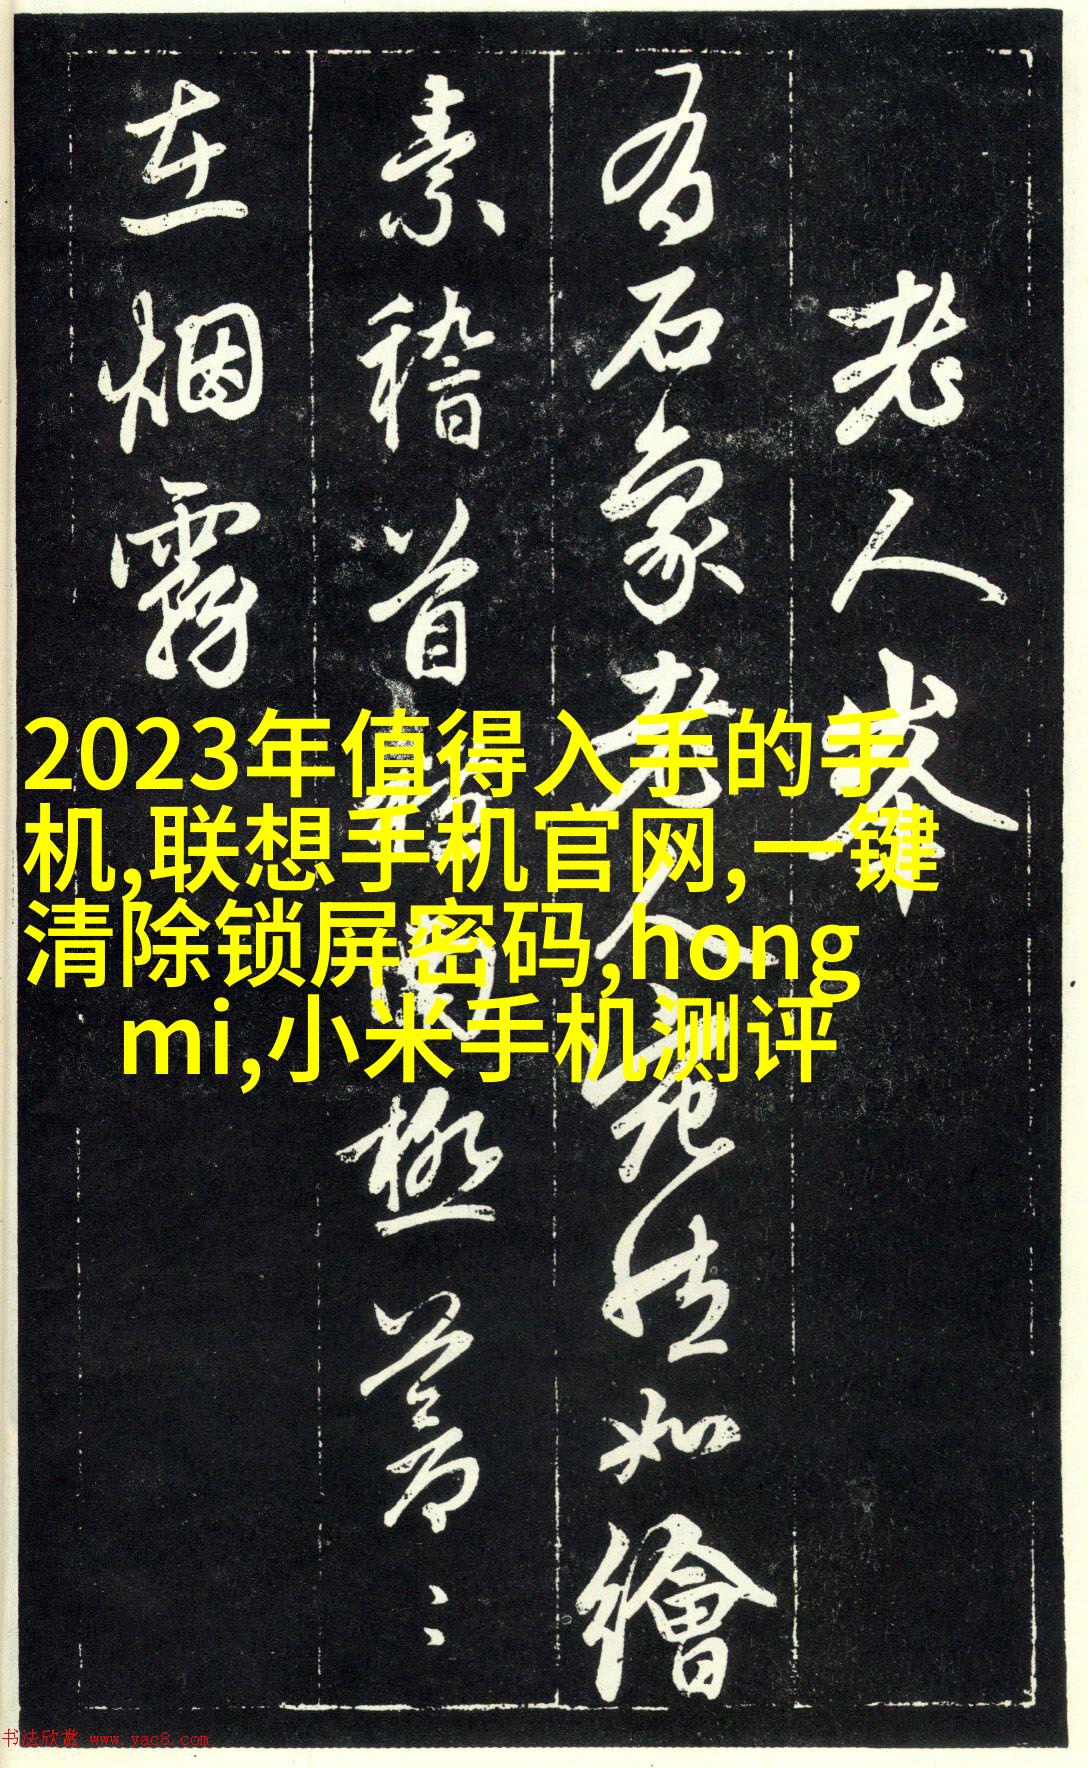 2023年值得入手的手
机,联想手机官网,一键
清除锁屏密码,hong
mi,小米手机测评
老人峯
有石象老人如繪
素稽首極
在烟霧
书法欣赏 www.yac8.com